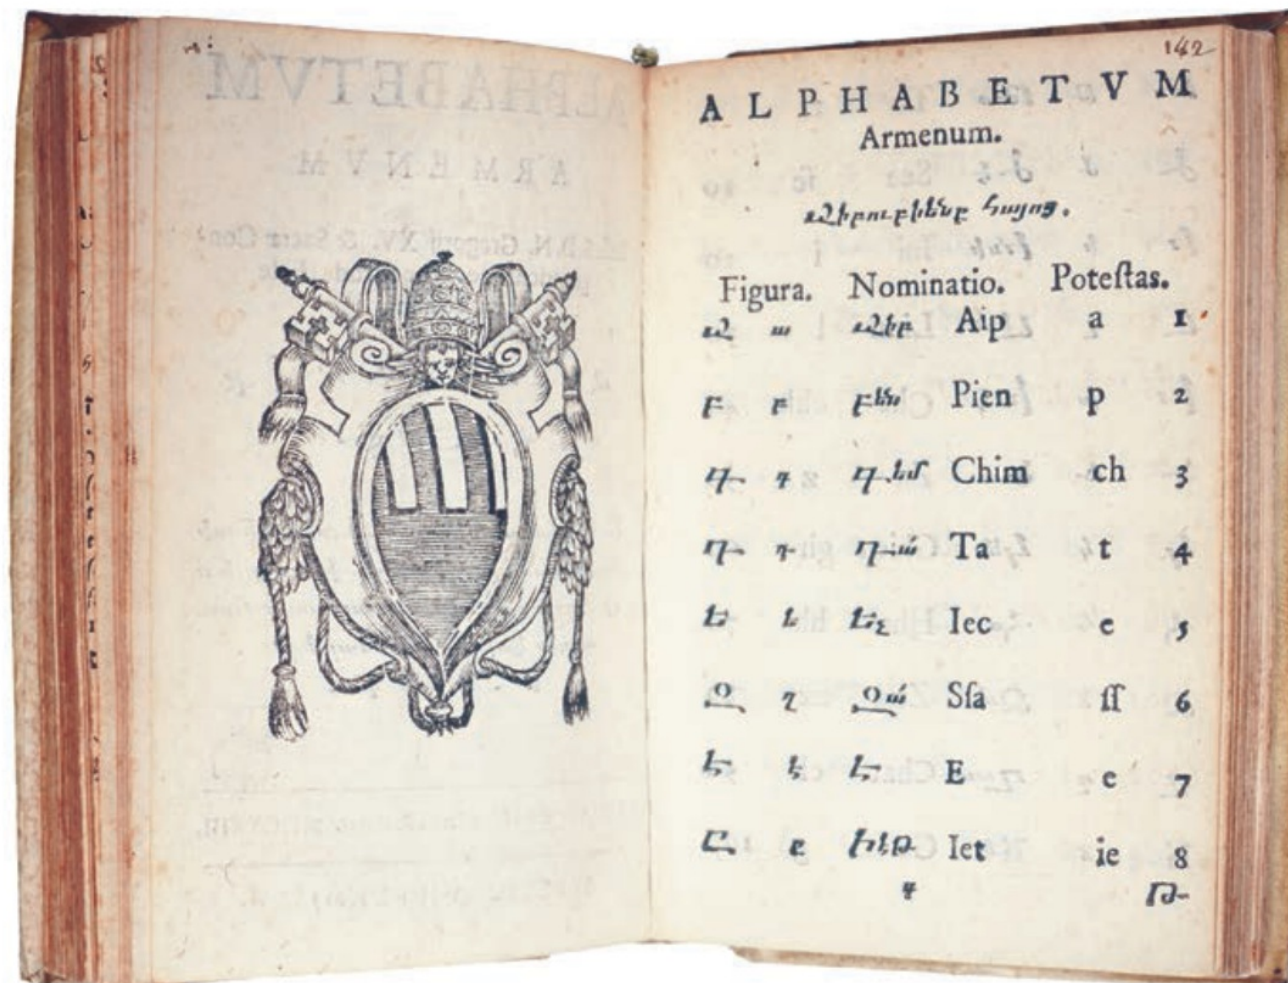 142
ALPHABETVM
Armenum.
Հայոց.
Figura. Nominatio. Poteſtas.
Ա ա Այբ Aip a 1
Բ բ բեն Pien p 2
Գ գ Գիմ Chim ch 3
Դ դ Դա Ta t 4
Ե ե Եչ Iec e 5
Զ զ Զա Sſa ſſ 6
Է է Է E e 7
Ը ը Iet ie 8
Թ